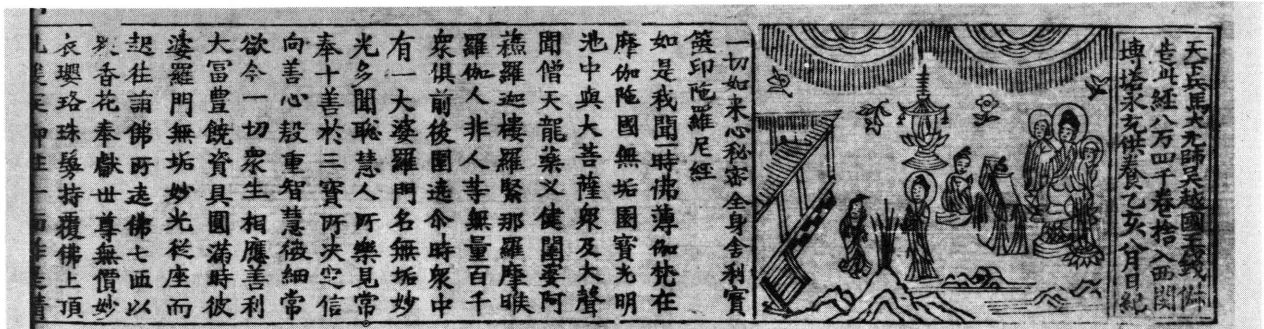 天下兵馬大元帥吳越國王錢俶
造此経八万四千卷捨入西関
塼塔永充供養乙亥八月日紀
一切如来心秘密全身舎利寳
篋印陁羅尼經
如是我聞一時佛薄伽梵在
摩伽陁國無垢園寶光明
池中與大菩薩衆及大聲
聞僧天龍藥叉健闥婆阿
蘓羅迦樓羅緊那羅摩睺
羅伽人非人等無量百千
衆俱前後圍遶尒時衆中
有一大婆羅門名無垢妙
光多聞聡慧人所樂見常
奉十善於三寶所决定信
向善心殷重智慧微細常
欲令一切衆生相應善利
大冨豊饒資具圓滿時彼
婆羅門無垢妙光従座而
起往詣佛所遶佛七匝以
衆香花奉獻世尊無價妙
衣瓔珞珠鬘持覆佛上頂
一面作是請